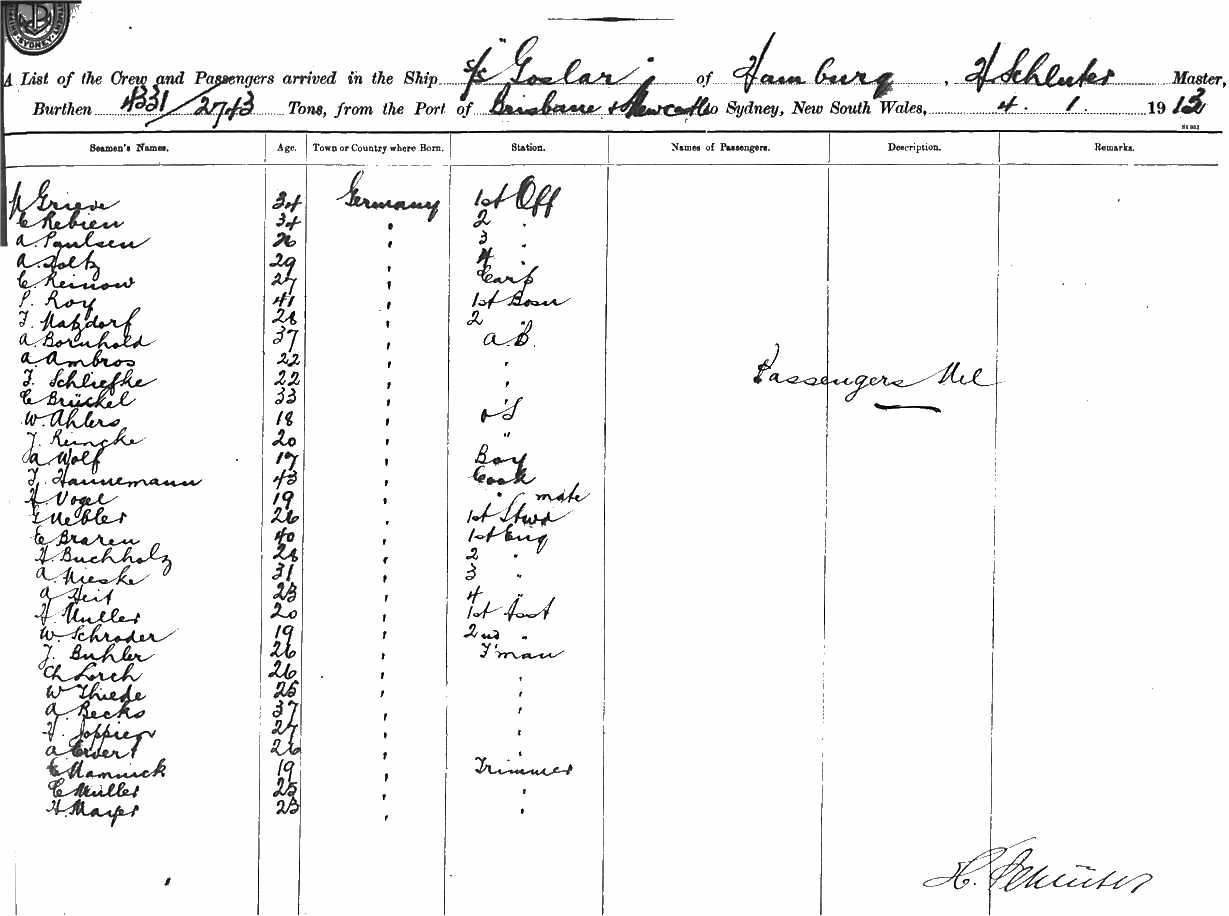 SYDNEY
A List of the Crew and Passengers arrived in the Ship s/s "Goslar" of Hamburg, H Schluter Master,
Burthen 4331/2743 Tons, from the Port of Brisbane & Newcastle to Sydney, New South Wales, 4. 1. 1913
Seamen's Names. Age. Town or Country where Born. Station. Names of Passengers. Description. Remarks.
Grieve 34 Germany 1st Off
C Rebien 34 " 2 "
A. Paulsen 26 " 3 "
A. 29 " 4 "
C Reinow 27 " Carp
P. Roy 41 " 1st Bosn
F. Matzdorf 28 " 2 "
A. Bornhold 37 " A.B.
A. Ambros 22 " "
F. Schliefke 22 " "
Passengers Nil
E Brückel 33 " "
W. Ahlers 18 " o S
J. Reincke 20 " "
A Wolf 17 " Boy
F. Hannemann 43 " Cook
H. Vogel 19 " " mate
Uebler 26 " 1st Stwd
C Braren 40 " 1st Eng
H. Buchholz 28 " 2 "
A. Nieske 31 " 3 "
A Heit 23 " 4 "
H. Muller 20 " 1st Asst
W. Schroder 19 " 2nd "
J. Buhler 26 " F'man
Ch Lorch 26 " "
W Thiede 25 " "
A. Becks 37 " "
27 " "
A Ewert 26 " "
E Mamnick 19 " Trimmer
C Müller 25 " "
H. Mayer 23 " "
H. Schlüter